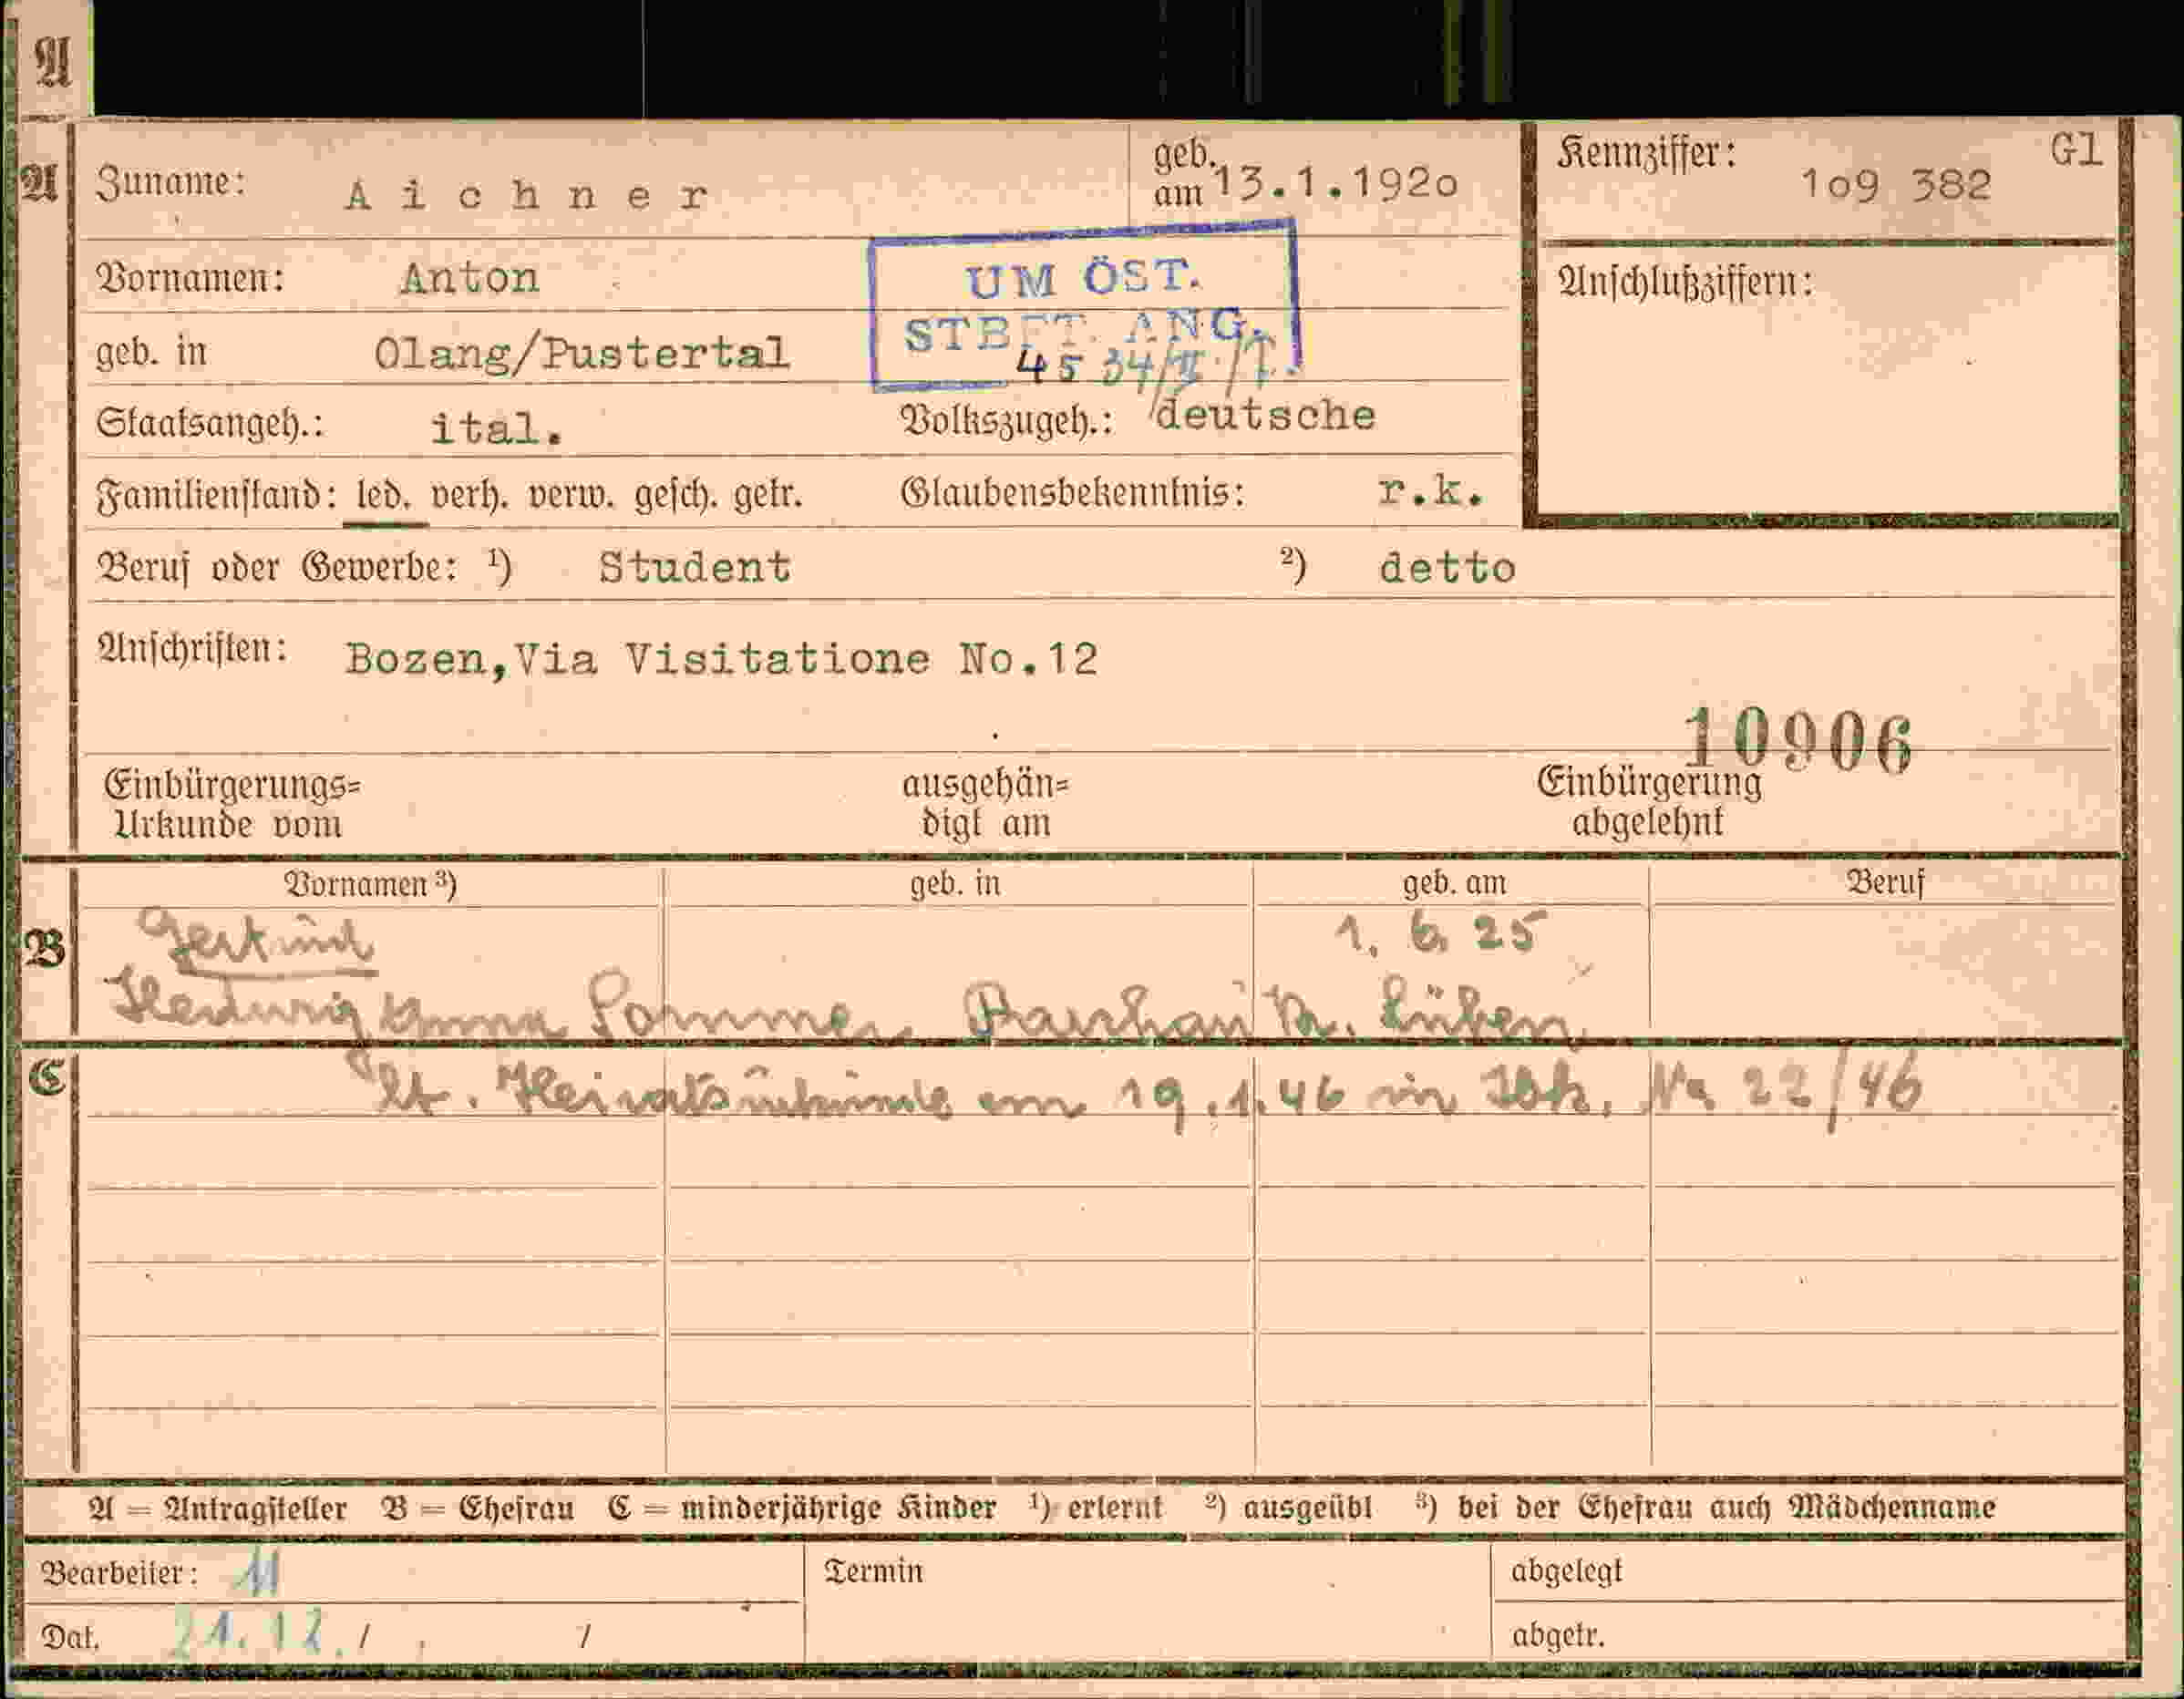 A
A
Zuname: Aichner
geb. am 13.1.192o
Kennziffer: 1o9 382 Gl
Vornamen: Anton
UM ÖST.
STBFT. ANG.
Anschlußziffern:
geb. in Olang/Pustertal
4534/II/
Staatsangeh.: ital. Volkszugeh.: deutsche
Familienstand: led. verh. verw. gesch. getr. Glaubensbekenntnis: r.k.
Beruf oder Gewerbe: ¹) Student ²) detto
Anschriften: Bozen,Via Visitatione No.12
10906
Einbürgerungs= ausgehän= Einbürgerung
Urkunde vom digt am abgelehnt
Vornamen ³) geb. in geb. am Beruf
B
Gertrud 1. 6. 25
Hedwig Anna Sommer Kr. Lüben
C
lt. Heiratsurkunde am 19.1.46 in Ibk. Nr. 22/46
A = Antragsteller B = Ehefrau C = minderjährige Kinder ¹) erlernt ²) ausgeübt ³) bei der Ehefrau auch Mädchenname
Bearbeiter: 11 Termin abgelegt
Dat. 21.12./ / abgetr.